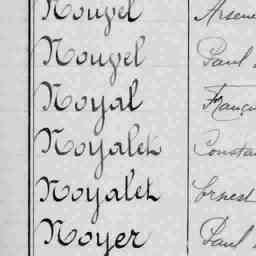 Nougel Arsene
Nougel Paul
Noyal
Noyalet
Noyalet Ernest
Noyer Paul